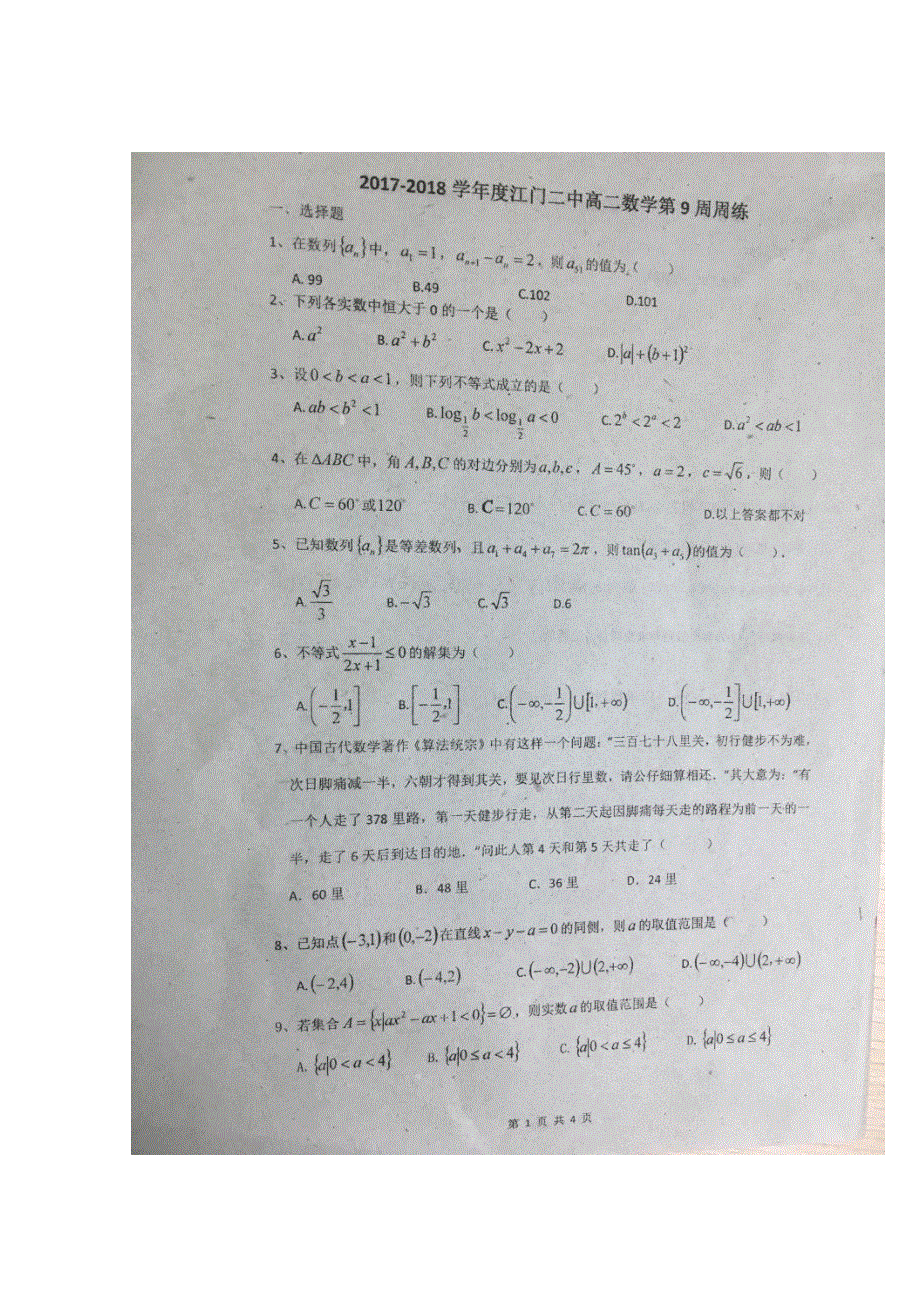 2017-2018 学年度江门二中高二数学第 9 周周练
一、选择题
1、在数列{aₙ}中，a₁ = 1，aₙ₊₁ − aₙ = 2，则 a₅₁ 的值为（ ）
A. 99 B.49 C.102 D.101
2、下列各实数中恒大于 0 的一个是（ ）
A. a² B. a² + b² C. x² − 2x + 2 D. |a| + (b+1)²
3、设 0 < b < a < 1，则下列不等式成立的是（ ）
A. ab < b² < 1 B. log_{1/2} b < log_{1/2} a < 0 C. 2ᵇ < 2ᵃ < 2 D. a² < ab < 1
4、在 ΔABC 中，角 A, B, C 的对边分别为 a, b, c，A = 45°，a = 2，c = √6，则（ ）
A. C = 60° 或 120° B. C = 120° C. C = 60° D.以上答案都不对
5、已知数列{aₙ}是等差数列，且 a₁ + a₄ + a₇ = 2π，则 tan(a₃ + a₅) 的值为（ ）.
A. √3/3 B. −√3 C. √3 D.6
6、不等式 (x−1)/(2x+1) ≤ 0 的解集为（ ）
A. (−1/2, 1] B. [−1/2, 1] C. (−∞, −1/2) ∪ [1, +∞) D. (−∞, −1/2] ∪ [1, +∞)
7、中国古代数学著作《算法统宗》中有这样一个问题："三百七十八里关，初行健步不为难，
次日脚痛减一半，六朝才得到其关，要见次日行里数，请公仔细算相还．"其大意为："有
一个人走了 378 里路，第一天健步行走，从第二天起因脚痛每天走的路程为前一天的一
半，走了 6 天后到达目的地．"问此人第 4 天和第 5 天共走了（ ）
A．60 里 B．48 里 C．36 里 D．24 里
8、已知点 (−3,1) 和 (0,−2) 在直线 x − y − a = 0 的同侧，则 a 的取值范围是（ ）
A. (−2,4) B. (−4,2) C. (−∞,−2) ∪ (2,+∞) D. (−∞,−4) ∪ (2,+∞)
9、若集合 A = {x|ax² − ax + 1 < 0} = ∅，则实数 a 的取值范围是（ ）
A. {a|0 < a < 4} B. {a|0 ≤ a < 4} C. {a|0 < a ≤ 4} D. {a|0 ≤ a ≤ 4}
第 1 页 共 4 页